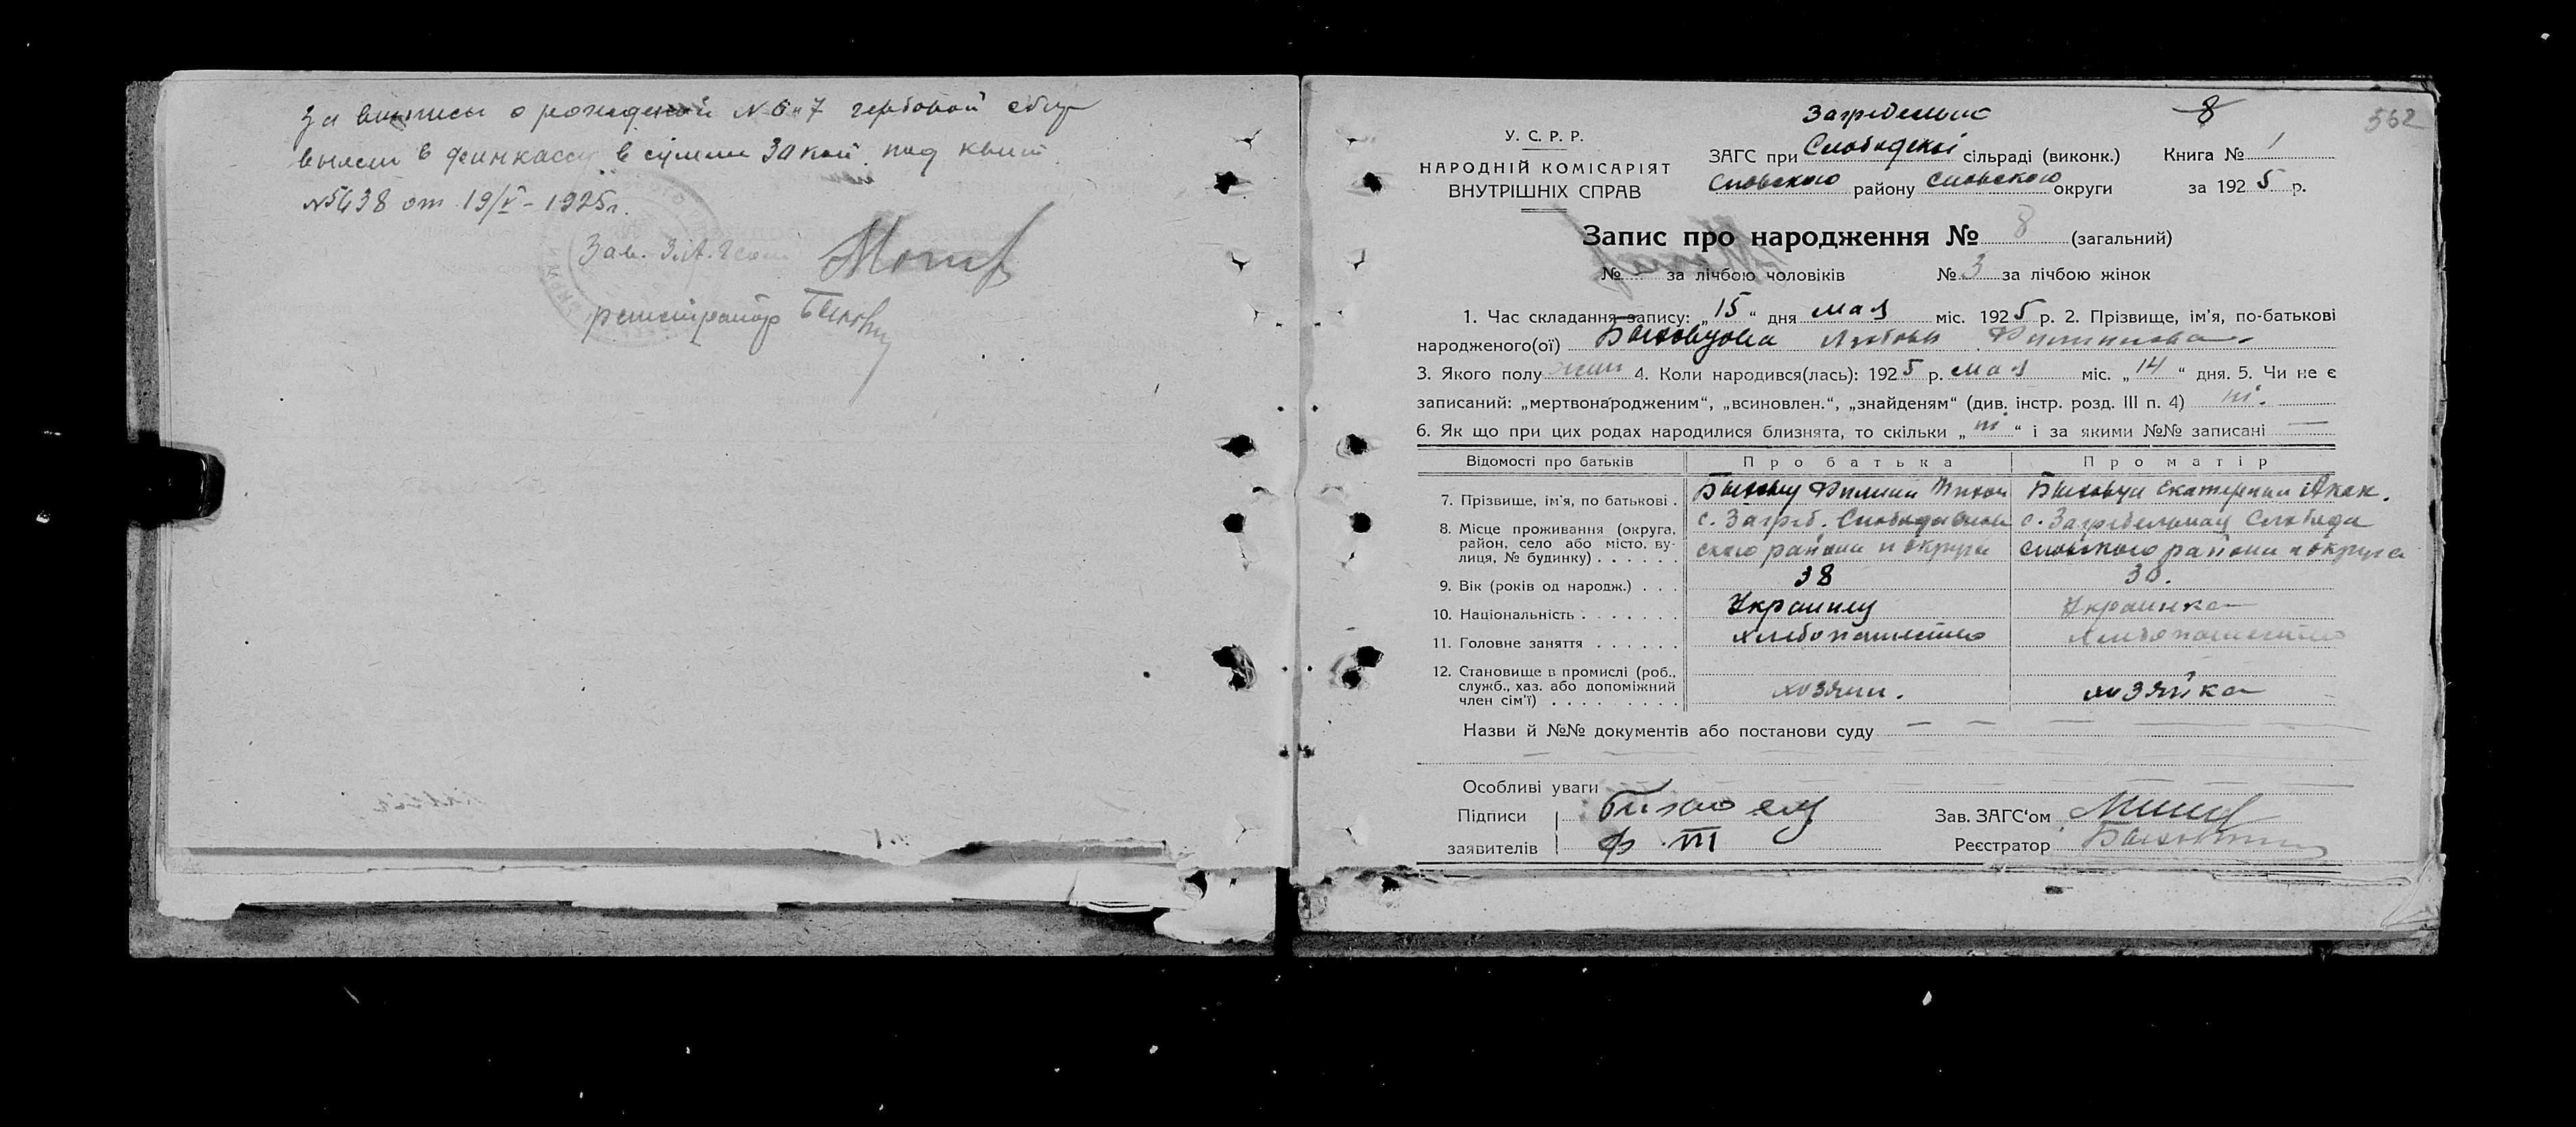 За выписи о рождений № 6 и 7 гербовой сбор
в финкассу в сумме 30 коп. под квит.
№ 5438 от 19/V - 1925 г.
Зав. З.А.Гсом
регистратор
Загребельн
8
562
У. С. Р. Р.
НАРОДНІЙ КОМІСАРІЯТ
ВНУТРІШНІХ СПРАВ
ЗАГС при Слободскої сільраді (виконк.) Книга № 1
району округи за 1925 р.
Запис про народження № 8 (загальний)
№ за лічбою чоловіків № 3 за лічбою жінок
1. Час складання запису: „15“ дня мая міс. 1925 р. 2. Прізвище, ім’я, по-батькові
народженого(ої) Быховцова Любовь Филиппова
3. Якого полу жин 4. Коли народився(лась): 1925 р. мая міс. „14“ дня. 5. Чи не є
записаний: „мертвонародженим“, „всиновлен.“, „знайденям“ (див. інстр. розд. III п. 4) ні.
6. Як що при цих родах народилися близнята, то скільки „ні“ і за якими №№ записані —
Відомості про батьків Про батька Про матір
7. Прізвище, ім’я, по батькові . Филипп Тихон Екатерина Акак.
8. Місце проживання (округа,
район, село або місто, ву-
лиця, № будинку) . . . . . .
с. Загреб. Слобода
ского района и округа
с. Загребельная Слобода
района и округа
9. Вік (років од народж.) . . . 38 30.
10. Національність . . . . . . . Украинец Украинка
11. Головне заняття . . . . . . хлебопашество хлебопашество
12. Становище в промислі (роб.,
служб., хаз. або допоміжний
член сім’ї) . . . . . . . . . хозяин. хозяйка
Назви й №№ документів або постанови суду — — — —
Особливі уваги
Підписи
заявителів
Ф
Зав. ЗАГС‘ом
Реєстратор